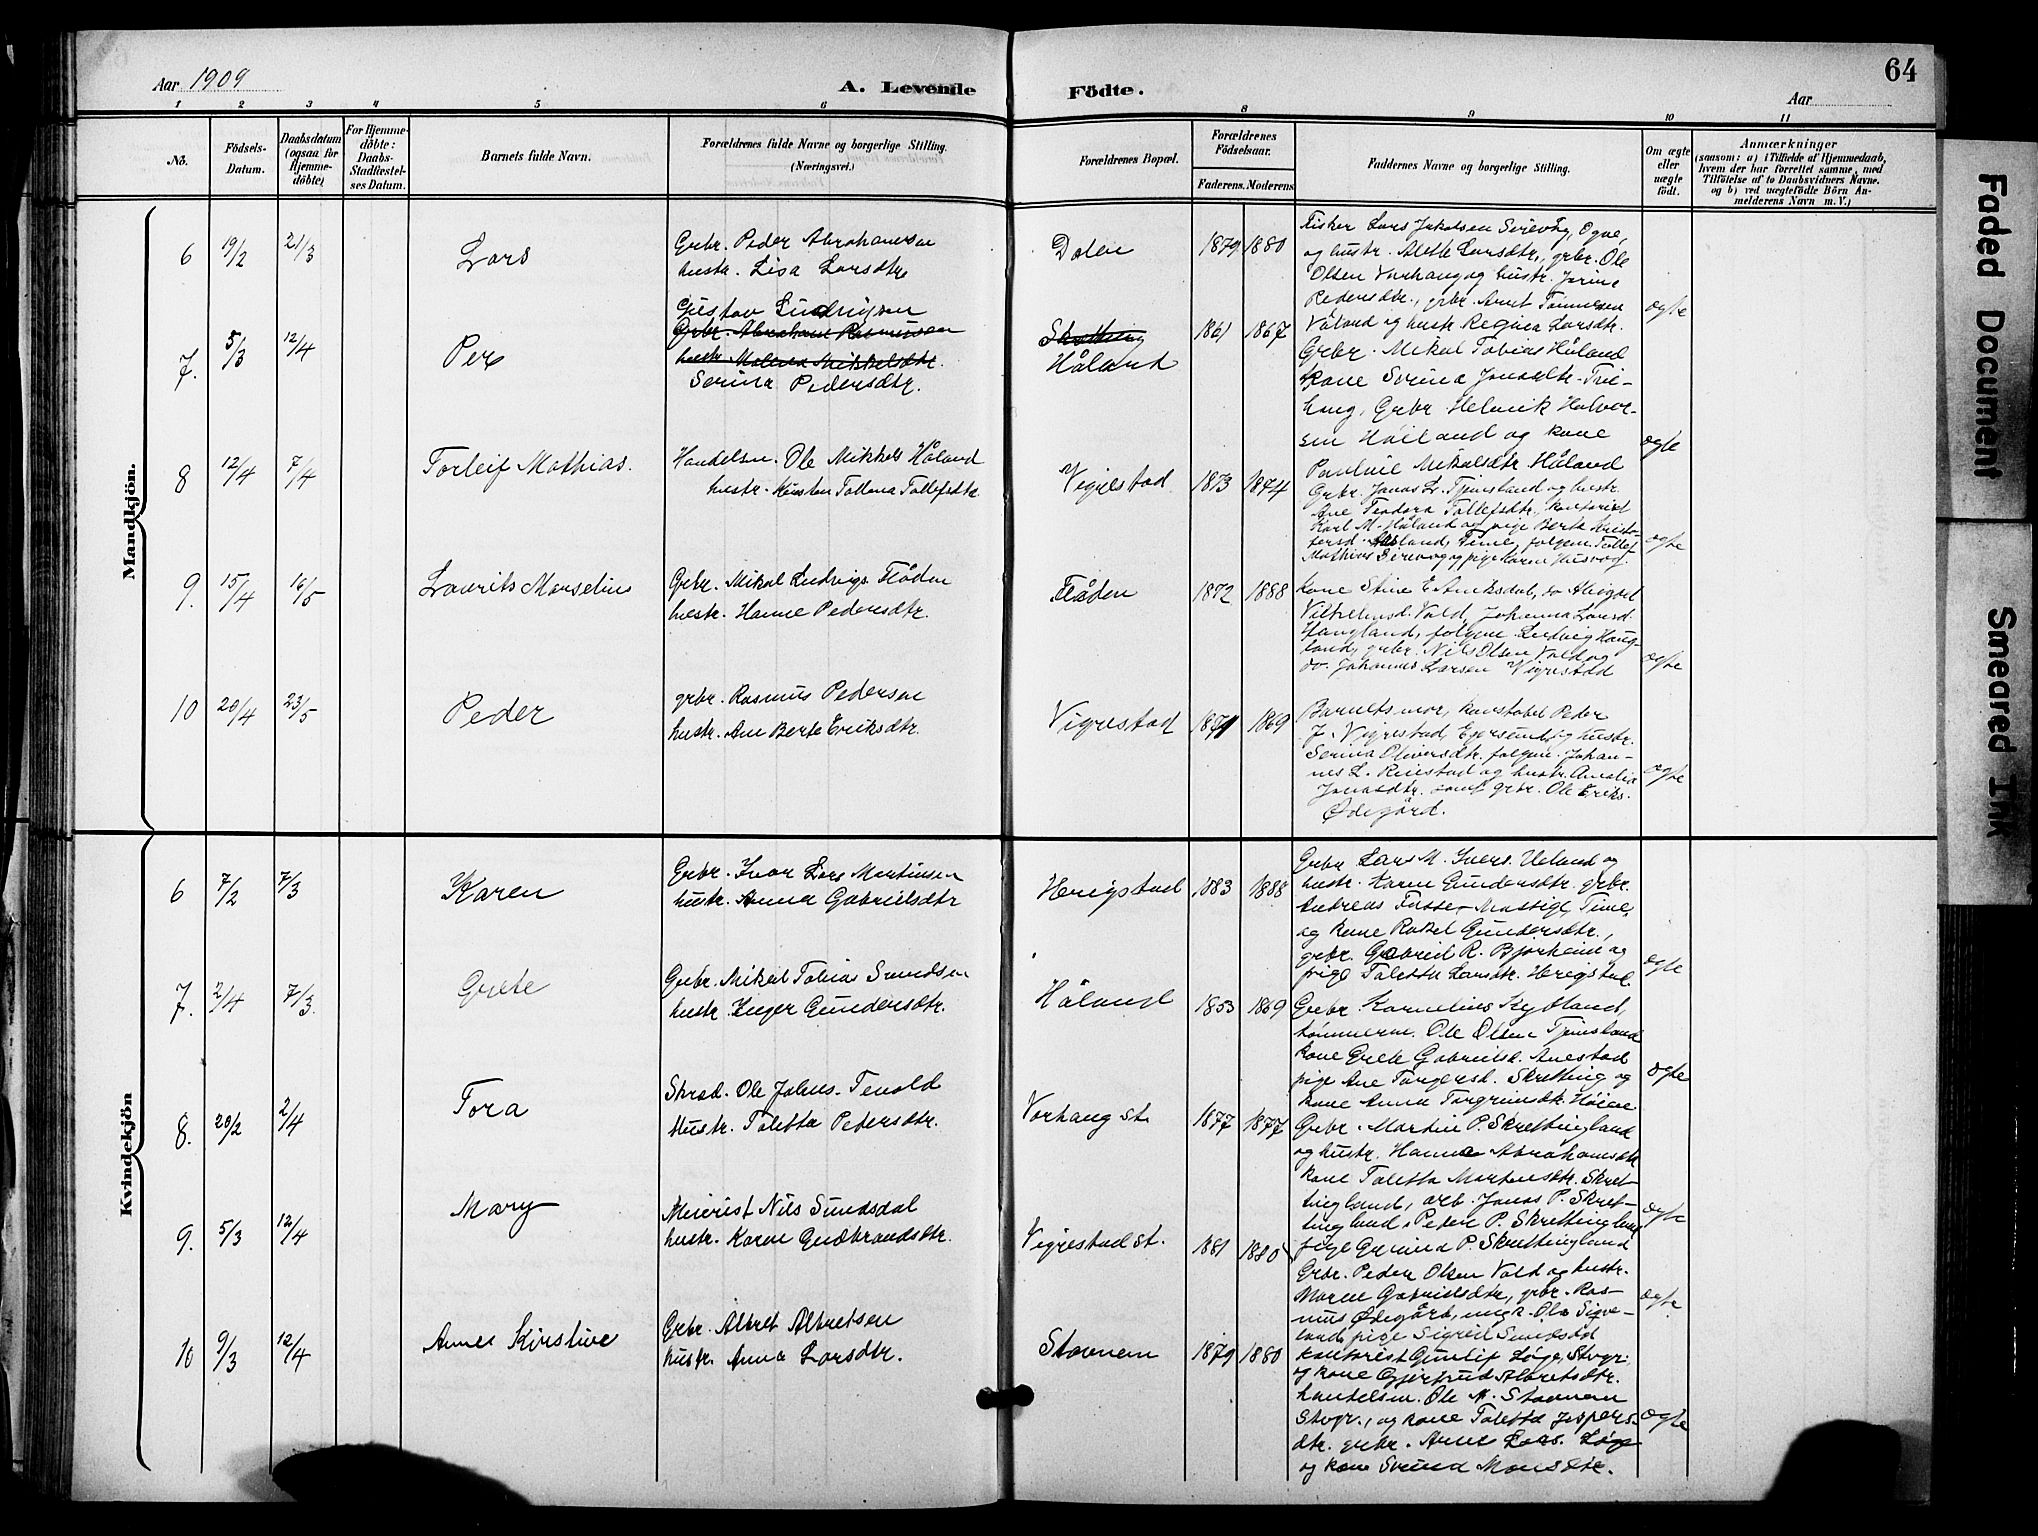 Aar 1909
A. Levende
Födte.
64
Aar
1 2 3 4 5 6 8 9 10 11
No.
Födsels-Datum.
Daabsdatum (ogsaa for Hjemme-döbte)
For Hjemme-döbte: Daabs-Stadfæstel-ses Datum.
Barnets fulde Navn.
Forældrenes fulde Navne og borgerlige Stilling.
(Næringsvei.)
Forældrenes Bopæl.
Forældrenes Födselsaar.
Faderens. Moderens.
Faddernes Navne og borgerlige Stilling.
Om ægte eller uægte födt.
Anmærkninger
(saasom: a) i Tilfælde af Hjemmedaab,
hvem der har forrettet samme, med
Tilföielse af to Daabsvidners Navne.
og b) ved uægtefödte Börn An-
melderens Navn m. V.)
Mandkjön.
6 19/2 21/3 Lars
Grbr. Peder Abrahamsen
hustr. Lisa Larsdtr
Dalen 1879 1880
Fisker Lars Jakobsen Sirevåg, Ogne,
og hustr. Alette Larsdtr., grbr. Ole
Olsen Varhaug og hustr. Jorine
Pedersdtr., grbr. Arnt Tønnesen
Våland og hustr. Regina Larsdtr.
ægte
7. 5/3 12/4 Per
Gustav Ludvigsen
Grbr. Abraham Rasmussen
hustr. Malena Mikkelsdtr.
Serina Pedersdtr.
Håland 1861 1867
Grbr. Mikal Tobias Håland
kone Serina Jonasdtr. Tvi-
haug, Grbr. Helmik Halvor-
sen Håiland og kone
Pauline Mikalsdtr. Håland
ægte
8 12/4 7/4 Torleif Mathias.
Handelsm. Ole Mikkels Håland
hustr. Kirsten Tallena Tollefsdtr.
Vigrestad 1873 1874
Grbr. Jonas L. Tjensland og hustr.
Ane Teodora Tollefsdtr., kontorist
Karl M. Håland og pige Berte Kristo-
fersd. Aasland, Time, folgem. Tollef
Mathias Sirevog og pige Karen Husvog.
ægte
9. 15/4 16/5 Laurits Marselius
Grbr. Mikal Ludvigs Flåden
hustr. Hanne Pedersdtr.
Flåden 1872 1888
Kone Stine E. Aniksdal, do Abigael
Vilhelmsd. Vald, Johanna Larsd.
Haugland, folgem. Ludvig Haug-
land, grbr. Nils Olsen Vald og
do. Johannes Larsen Vigrestad
ægte
10 20/4 23/5 Peder
grbr. Rasmus Pedersen
hustr. Ane Berte Eriksdtr.
Vigrestad 1871 1869
Barnets mor, konstabel Peder
J. Vigrestad, Egersund og hustr.
Serina Oliversdtr. folgem. Johan-
nes L. Reiestad og hustr. Amalia
Jonasdtr. samt grbr. Ole Eriks.
Ødegård.
ægte
Kvindekjön
6 7/2 7/3 Karen
Grbr. Ivar Lars Martinsen
hustr. Anna Gabrielsdtr
Herigstad 1883 1888
Grbr Lars M. Ivers. Ueland og
hustr. Karen Gundersdtr. grbr.
Andreas Fosse- Mossige, Time,
og kone Rakel Gundersdtr.,
grbr. Gabriel R. Bjorheim og
pige Taletta Larsdtr. Herigstad.
ægte
7. 2/4 7/3. Grete
Grbr. Mikal Tobias Svendsen
hustr. Inger Gundersdtr.
Håland 1853 1869
Grbr. Kornelius Kydland,
tømmerm. Ole Olsen Tjensland
kone Grete Gabrielsd. Anestad
pige Ane Torgersd. Skretting og
kone Anna Torgrimsdtr. Høien
ægte
8. 20/2 2/4 Tora
Skræd. Ole Johns. Tenold
Hustr. Taletta Pedersdtr.
Varhaug st. 1877 1877
Grbr. Martin P. Skrettingland
og hustr. Hanna Abrahamsdtr
kone Taletta Martensdtr. Skret-
tingland, arb. Jonas P. Skret-
tingland, Peder P. Skrettingland
pige Gurina P. Skrettingland
ægte
9. 5/3 12/4 Mary
Meierist Nils Sundsdal
hustr. Karen Gudbrandsdtr.
Vigrestad st. 1881 1880
Grbr. Peder Olsen Vold og hustr.
Maren Gabrielsdtr, grbr. Ras-
mus Ødegård, ungk. Ole Sigve-
land, pige Sigreid Sundsdal
ægte
10 9/3 12/4 Annes Kirstine
Grbr. Albret Albretsen
hustr. Anna Larsdtr.
Stavnem 1879 1880
kontorist Gunlif Løge, Stvgr.
og kone Gjertrud Albretsdtr.
handelsm. Ole M. Stavnem
Stvgr., og kone Taletta Jespers-
dtr. grbr. Arne Lars. Løge
og kone Svend Monsdtr.
ægte
Faded Document
Smeared Ink